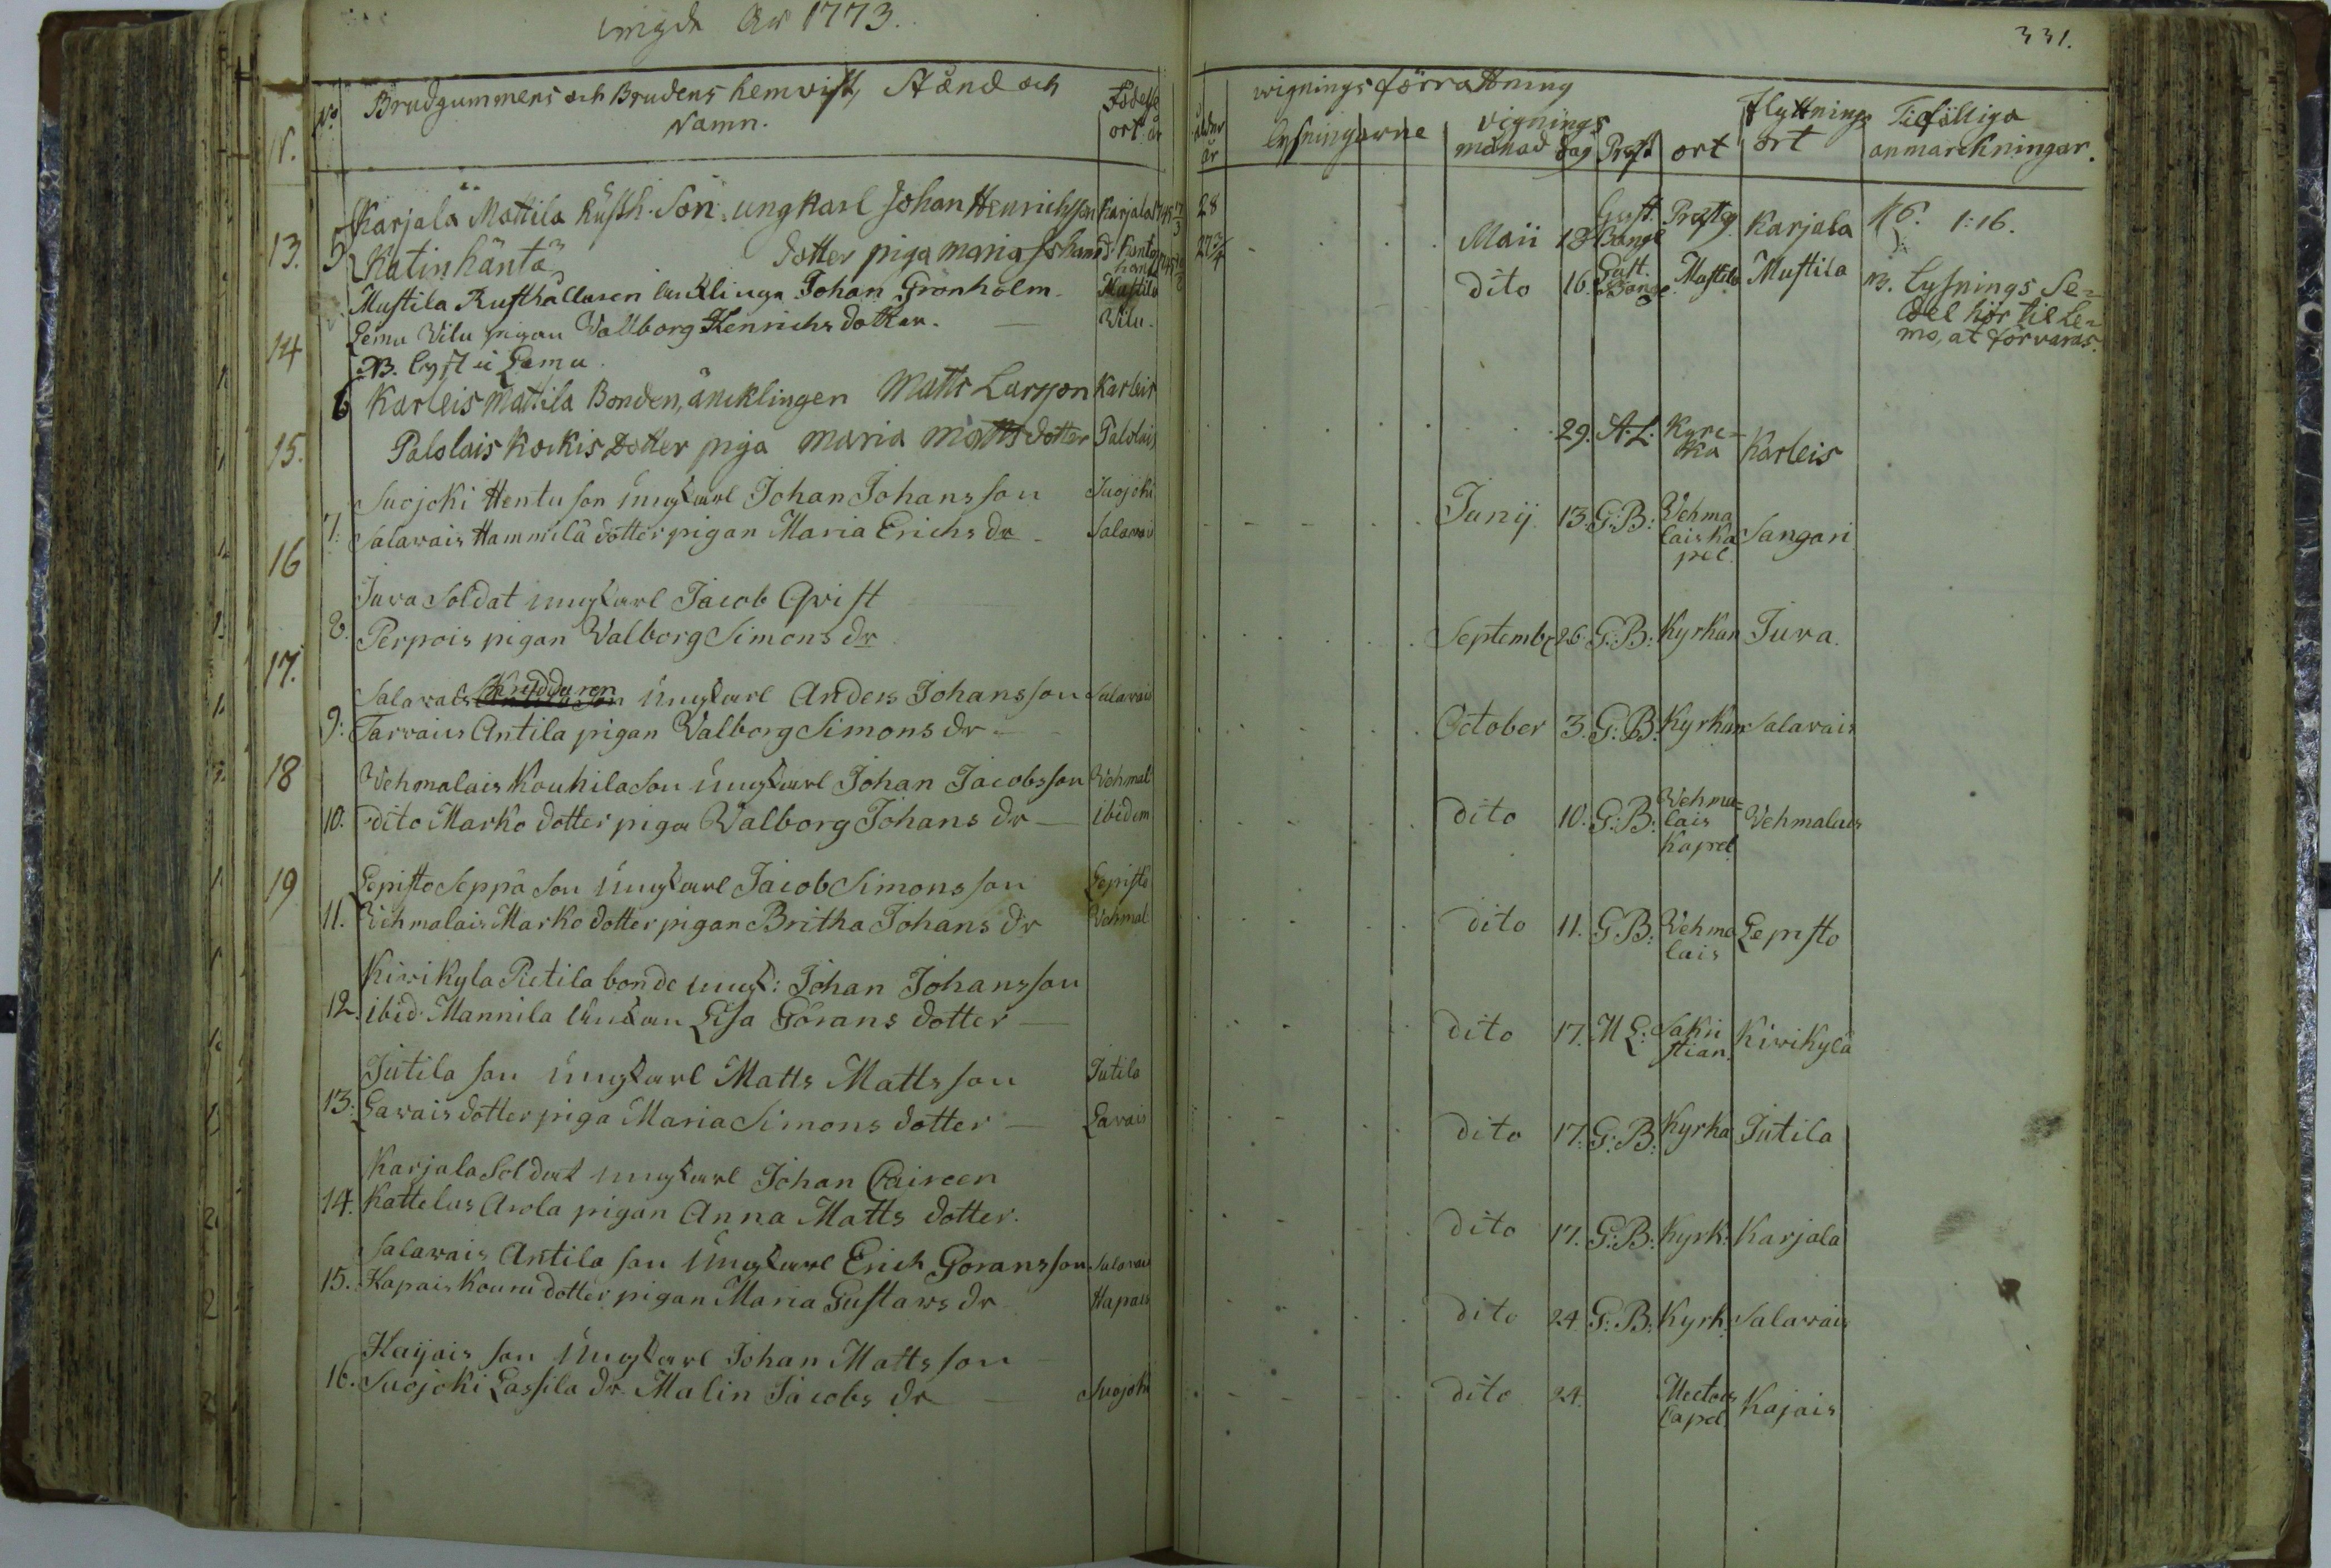 vigda År 1773.
331.
No
Brudgummens och Brudens hemvist, Stånd och
Namn.
Födelse
ort år
ålder
år
wignings förrättning
lysningarne
vignings
månad dag Präst ort
flyttnings
ort
Tilfällige
anmärckningar.
13.
14
15.
16
17.
18
19
5 Karjala Mattila Rusth. Son, ungkarl Johan Henrichsson Karjala 28
Katinhäntä dotter piga maria Johans d. 27 3/4
Maii 18 Gust. Bange Prästg Karjala N6. 1:16.
Mustila Rusthållaren äncklinga Johan Grönholm. Mustila
Lemu Vilu pigan Vallborg Henrichs dotter. Vilu.
NB. lyst i Lemu.
dito 16. Gust. Bange Mustila Mustila
NB. lysnings Se=
del hör til Le=
mo, at förvaras.
6 Karleis Mattila Bonden, äncklingen Matts Larsson Karleis
Palolais Kockis dotter piga maria Matts dotter Palolais
29. A.L: Kyrc=
kka Karleis
Suojoki Hentu son ungkarl Johan Johansson Suojoki
7: Salavais Hammila dotter pigan Maria Erichs dr Salavais
Junij 13. G:B: Vehma
lais Ka
pel. Sangari
Juva Soldat ungkarl Jacob Qvist
8. Perpois pigan Valborg Simons dr
Septemb: 26 G:B: Kyrkan Juva.
Salavais ungkarl Anders Johansson Salavais
9: Tarvais Antila pigan Valborg Simons dr
October 3. G:B: Kyrkan Salavais
Vehmalais Kouhila Son ungkarl Johan Jacobsson Vehmal
10. dito Marko dotter piga Valborg Johans dr ibidem
dito 10. G:B: Vehma=
lais
Kapel Vehmalais
Lepisto Seppä Son ungkarl Jacob Simonsson Lepistö
11. Vehmalais Marko dotter pigan Britha Johans dr Vehmal
dito 11. G.B: Vehma
lais Lepisto
Kirikyla Pietila bonde ungk: Johan Johansson
12. ibid: Mannila änkan Lisa Görans dotter
dito 17. M L: Sakri
stian. Kirikylä
Jutila son ungkarl Matts Mattsson Jutila
13: Lavais dotter piga Maria Simons dotter Lavais
dito 17. G:B: Kyrka Jutila
Karjala Soldat ungkarl Johan
14. Kattelus Arola pigan Anna Matts dotter.
dito 17. G:B: Kyrk: Karjala
Salavais Antila son ungkarl Erich Göransson Salavais
15. Hapais Kouru dotter pigan Maria Gustavs dr Hapais
dito 24 G:B: Kyrk. Salavais
Kajais son ungkarl Johan Mattsson
16. Suojoki Lassila dr. Malin Jacobs dr Suojoki
dito 24. Capel Kajais